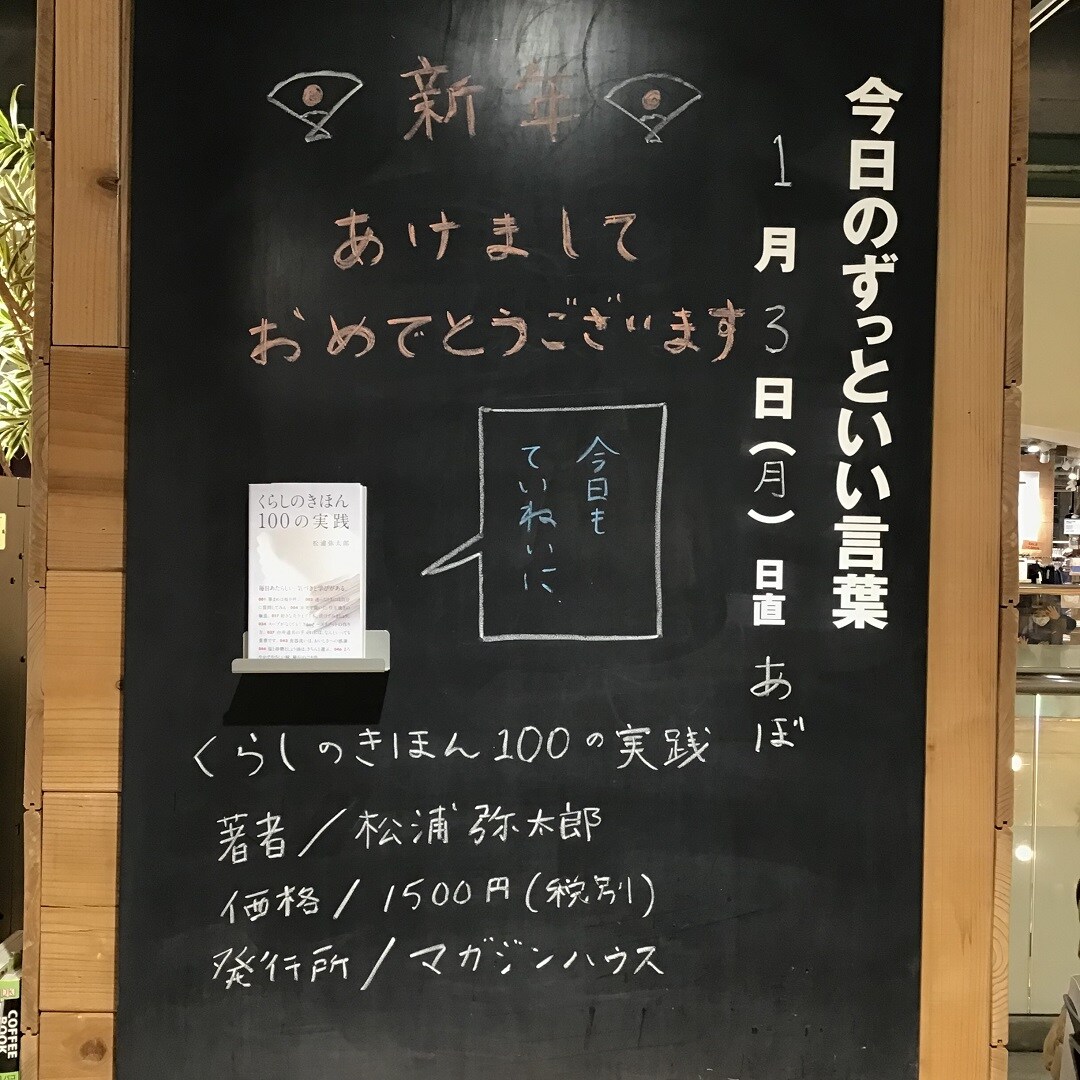 今日のずっといい言葉
1月3日(月) 日直 あぼ
新年
あけまして
おめでとうございます
今日も
ていねいに
くらしのきほん
100の実践
松浦弥太郎
くらしのきほん100の実践
著者/松浦弥太郎
価格/1500円(税別)
発行所/マガジンハウス
COFFEE
BOOK